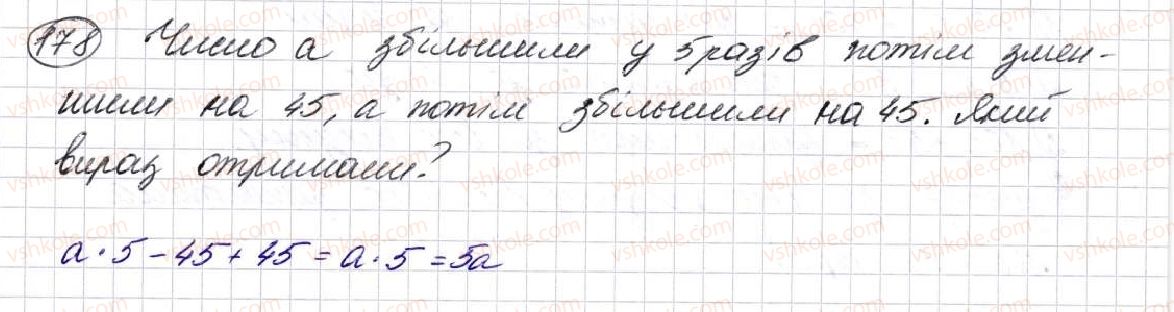 178 Число а збільшили у 5 разів потім змен-
шили на 45, а потім збільшили на 45. Який
вираз отримали?
a · 5 – 45 + 45 = a · 5 = 5a